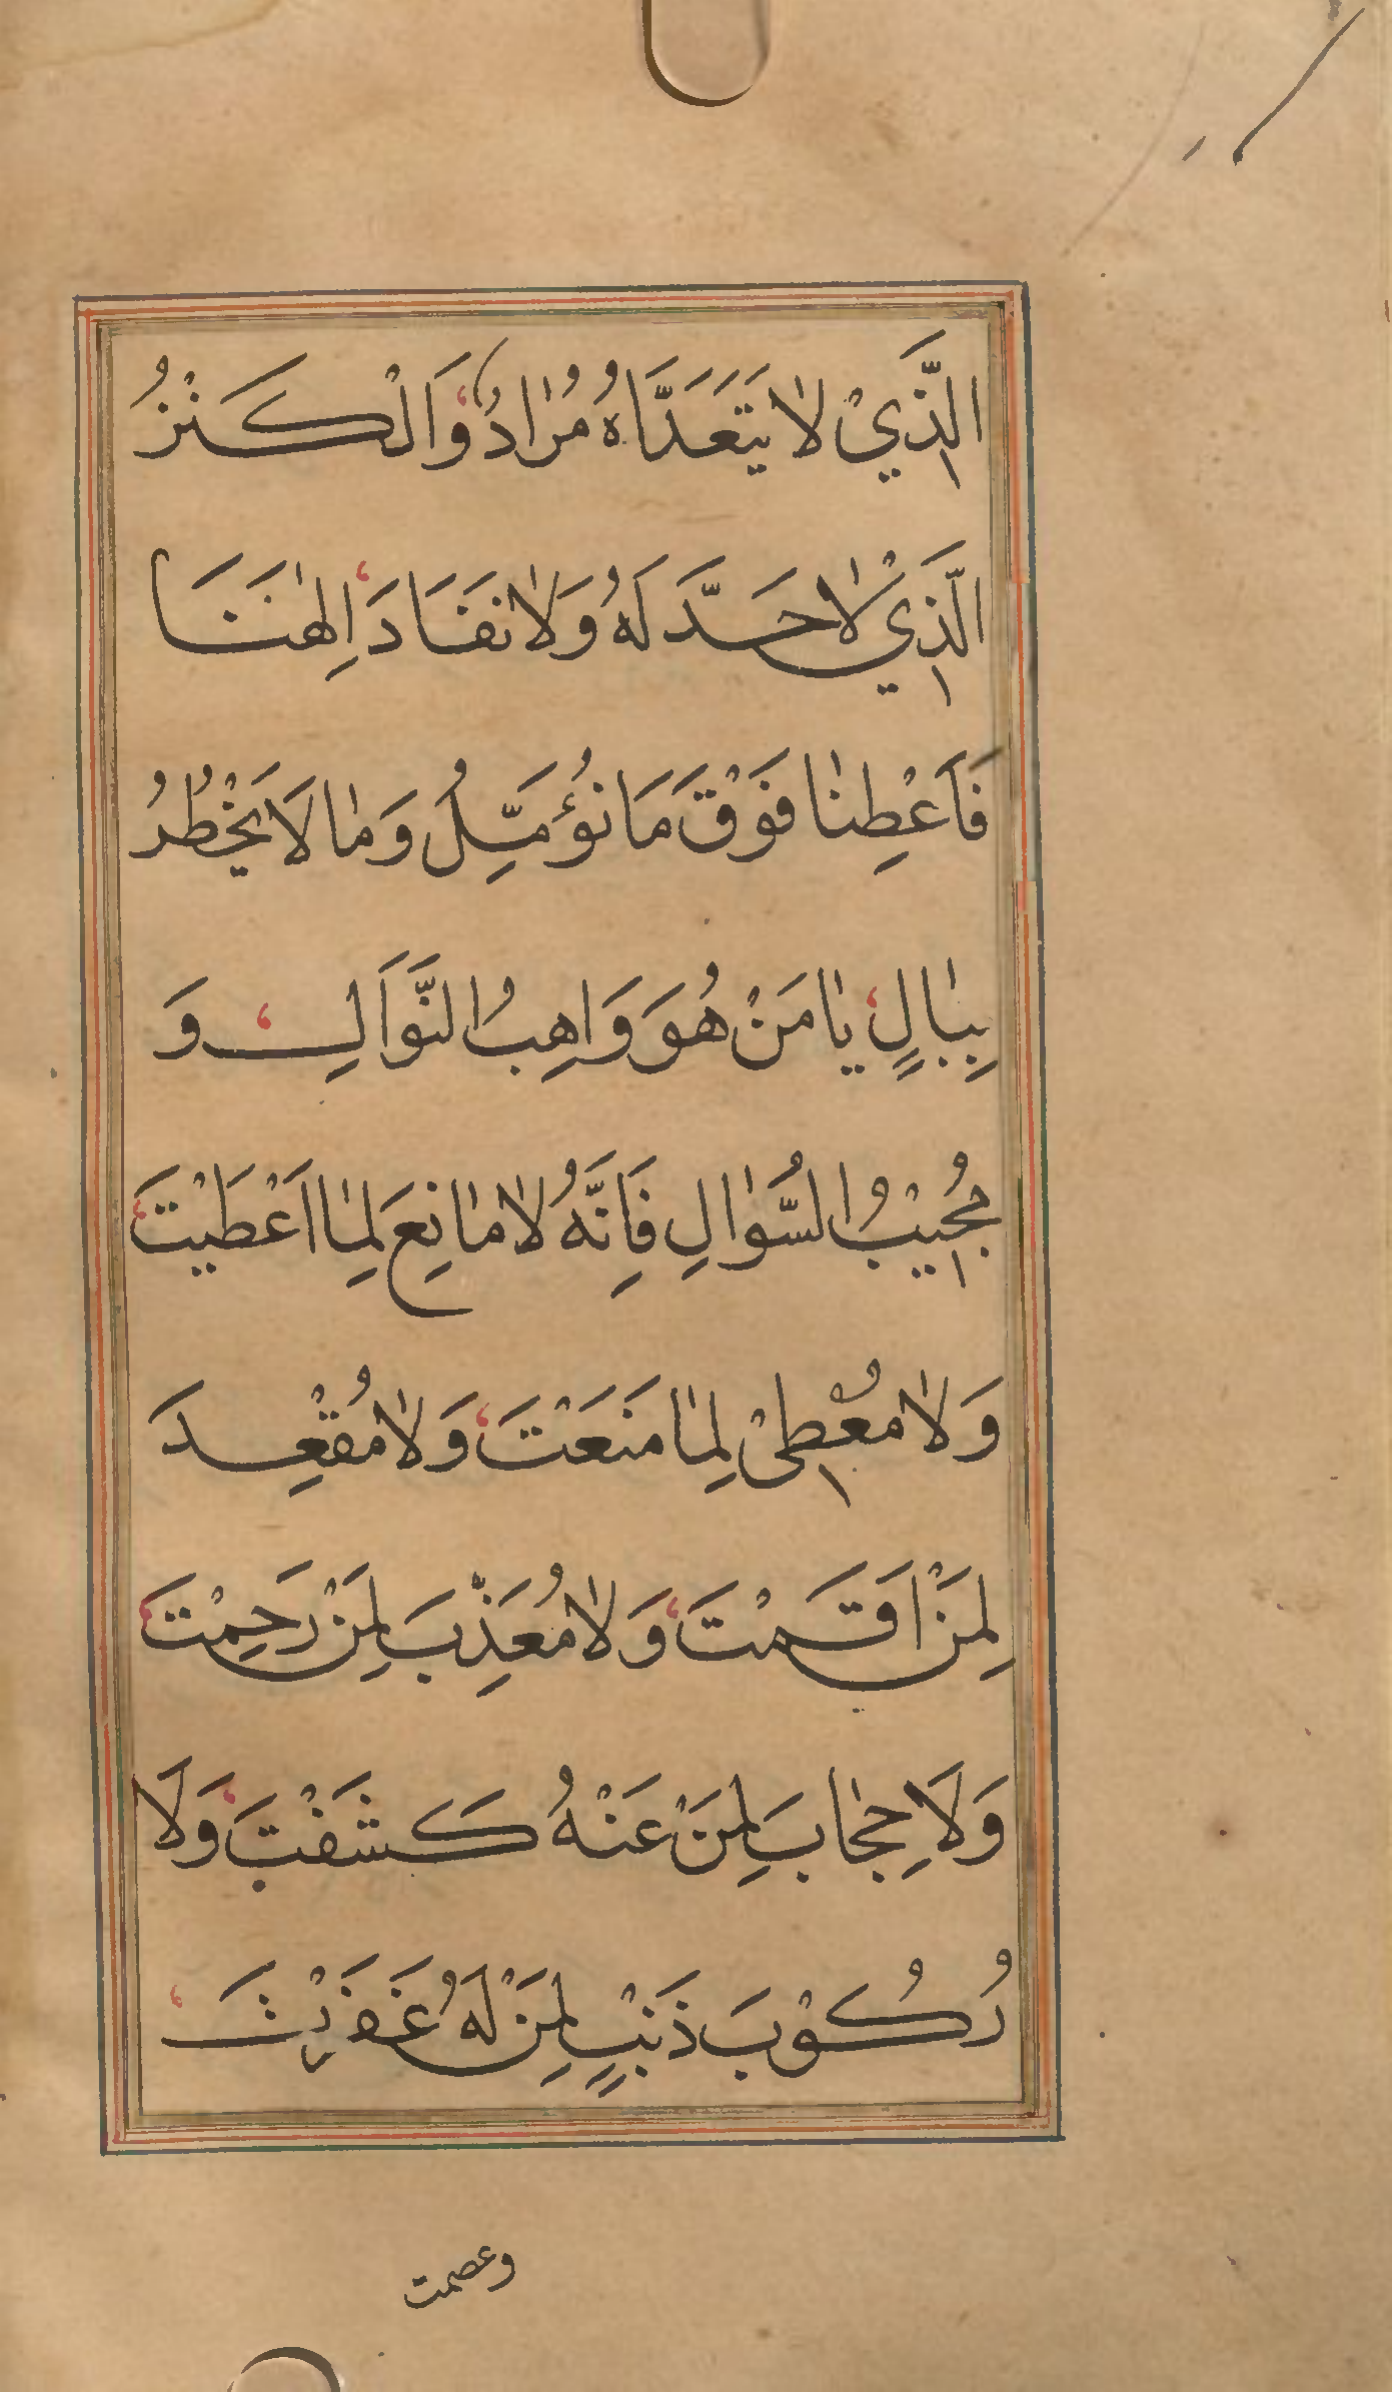 الَّذِيْ لَا يَتَعَدَّاهُ مُرَادٌ وَالْكَنْزُ
الَّذِيْ لَا حَدَّ لَهُ وَلَا نَفَادَ اِلٰهَنَا
فَاَعْطِنَا فَوْقَ مَا نُؤَمِّلُ وَمَا لَا يَخْطُرُ
بِبَالٍ يَا مَنْ هُوَ وَاهِبُ النَّوَالِ وَ
مُجِيْبُ السُّوَالِ فَاِنَّهُ لَا مَانِعَ لِمَا اَعْطَيْتَ
وَلَا مُعْطِيْ لِمَا مَنَعْتَ وَلَا مُقْعِدَ
لِمَنْ اَقَمْتَ وَلَا مُعَذِّبَ لِمَنْ رَحِمْتَ
وَلَا حِجَابَ لِمَنْ عَنْهُ كَشَفْتَ وَلَا
رُكُوْبَ ذَنْبٍ لِمَنْ لَهُ غَفَرْتَ
وعصمت